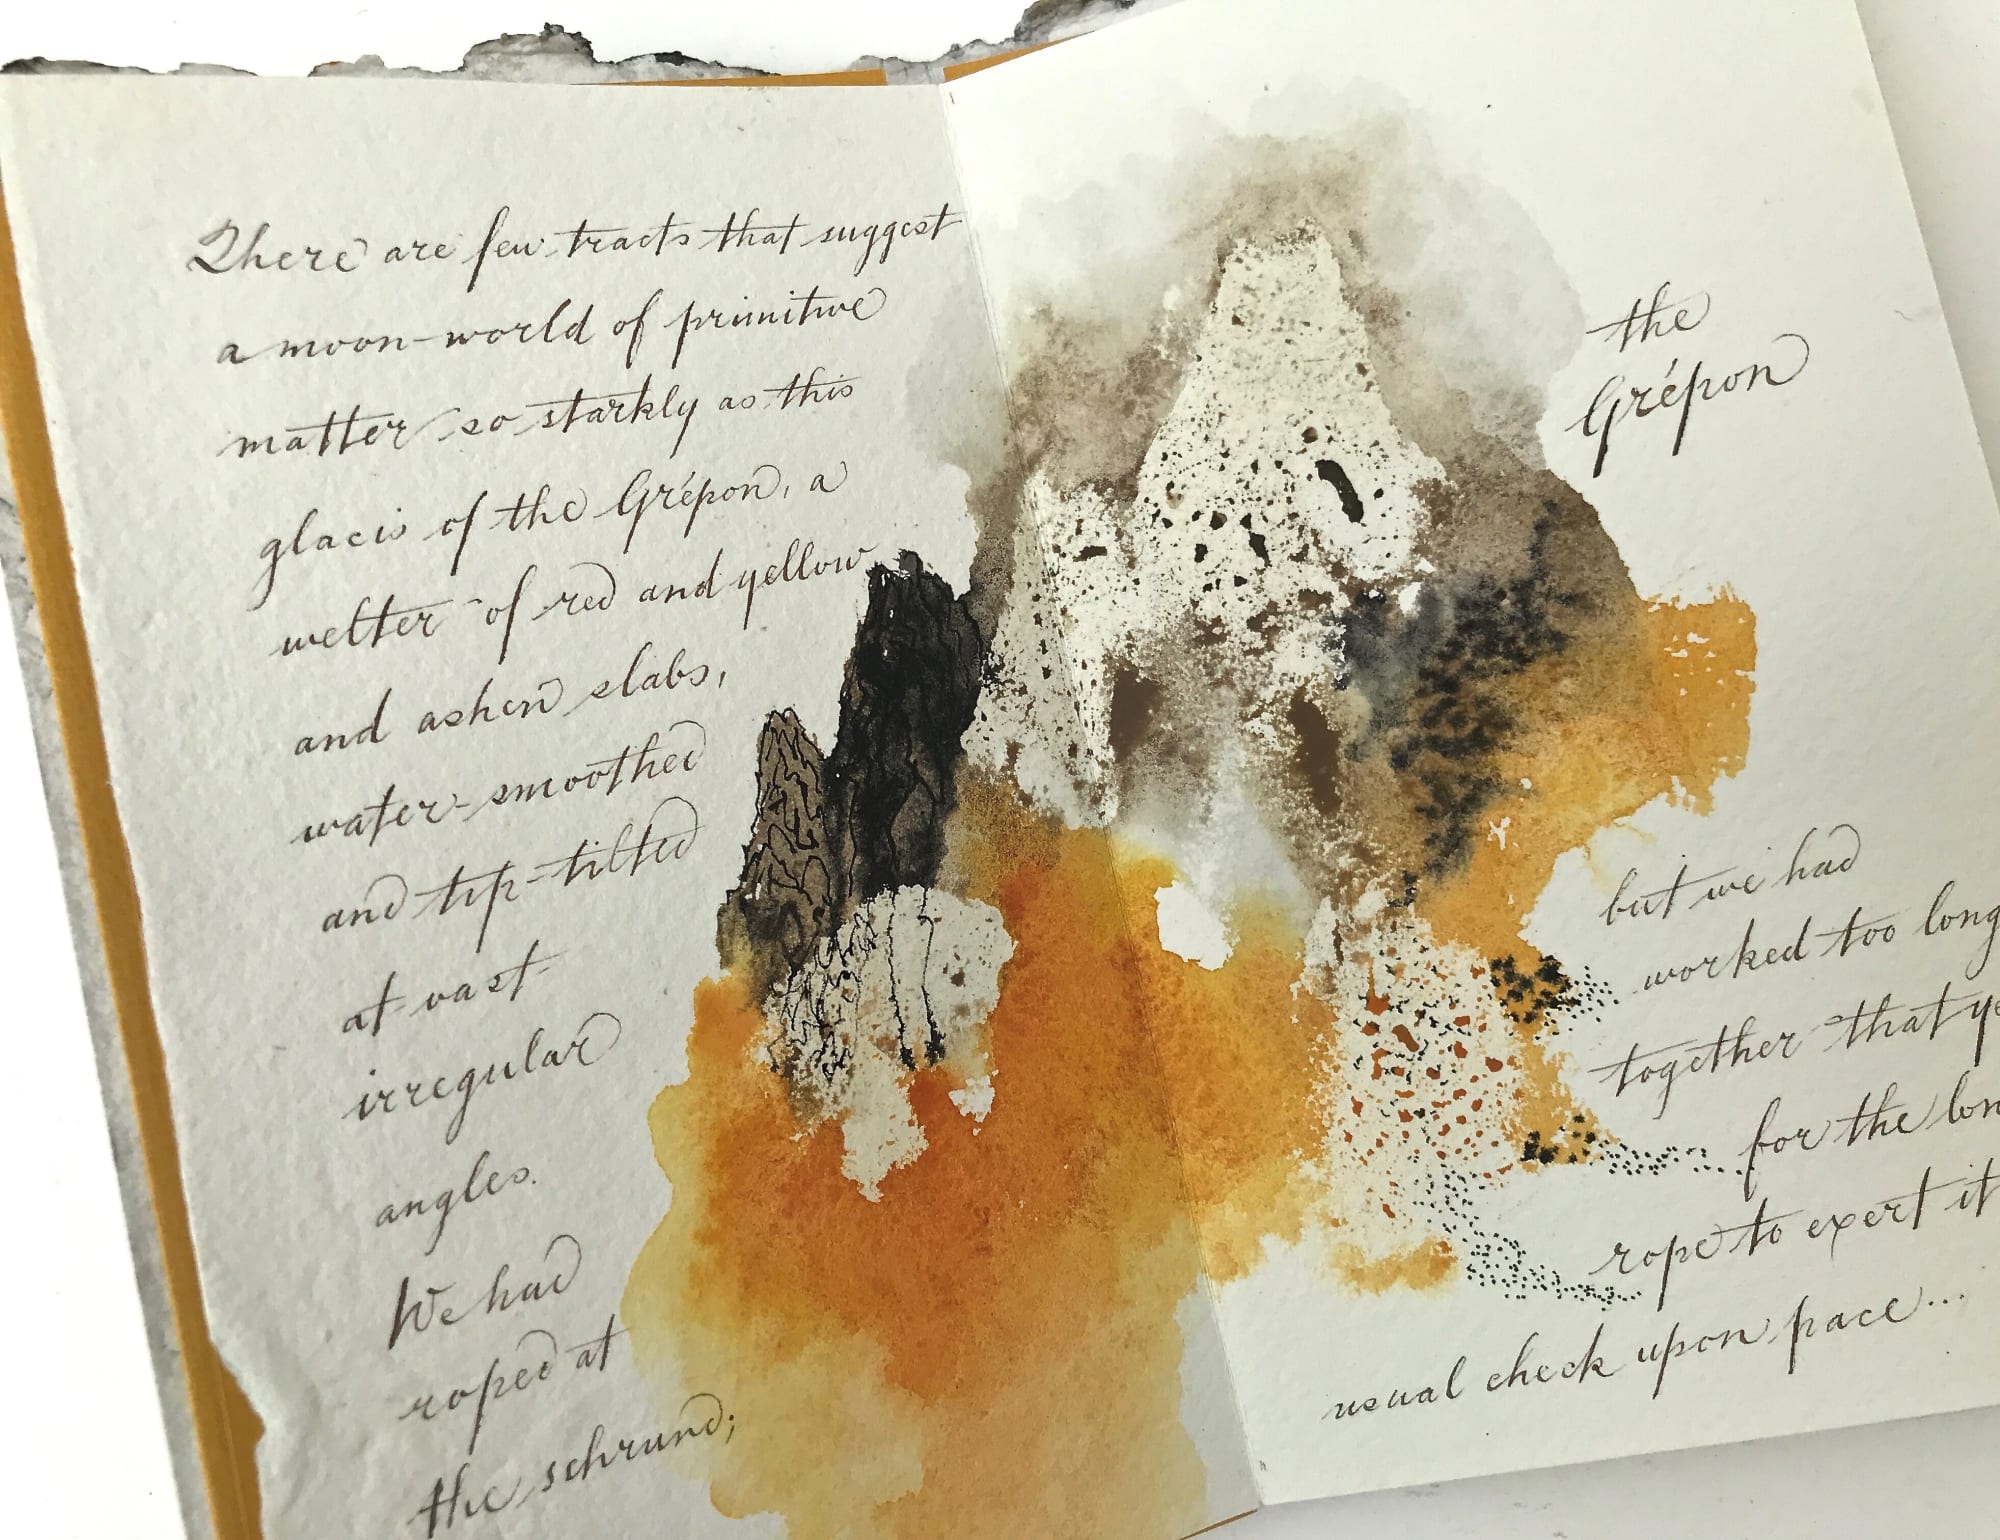 There are few tracts that suggest
a moon-world of primitive
matter so starkly as this
glacis of the Grépon, a
welter of red and yellow
and ashen slabs,
water-smoothed
and tip-tilted
at vast
irregular
angles.
We had
roped at
the schrund;
the
Grépon
but we had
worked too long
together that
for the
rope to exert
usual check upon pace...